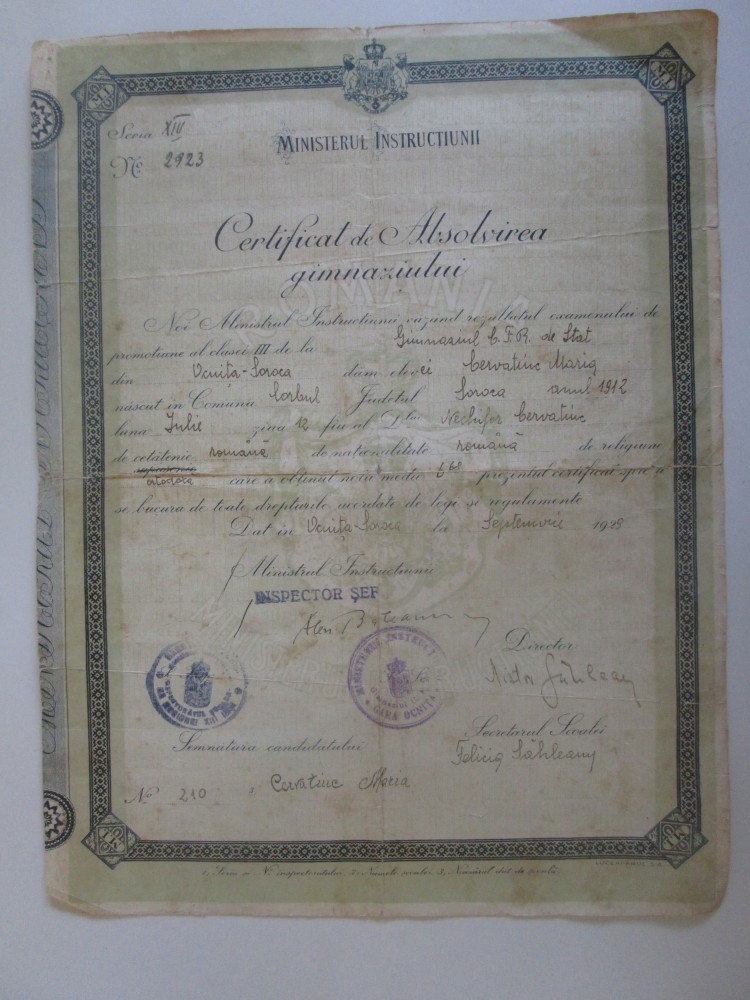 Seria XIV
MINISTERUL INSTRUCTIUNII
No 2923
Certificat de Absolvirea
gimnaziului
ROMANIA
Noi Ministrul Instructiunii vazând rezultatul examenului de
promotiune al clasei III de la Gimnasiul C.F.R. de Stat
din Ocnița-Soroca dăm elevei Cervatiuc Maria
născut în Comuna Corbul Județul Soroca anul 1912
luna Iulie ziua 12 fiu al Dlui Nechifor Cervatiuc
de cetătenie română de nationalitate română de religiune
ortodoxă care a obtinut nota medie 6,68 prezentul certificat spre a
se bucura de toate drepturile acordate de legi si regulamente
Dat in Ocnița-Soroca la Septemvrie 1928
Ministrul Instructiunii
INSPECTOR ȘEF
Director
MINISTERUL INSTRUCT
GARA OCNIȚA
Secretarul Scoalei
Felicia
Semnatura candidatului
No 210 Cervatiuc Maria
1, Seria si No inspectoratului, 2, Numele scolii, 3, Numărul dat de scoală